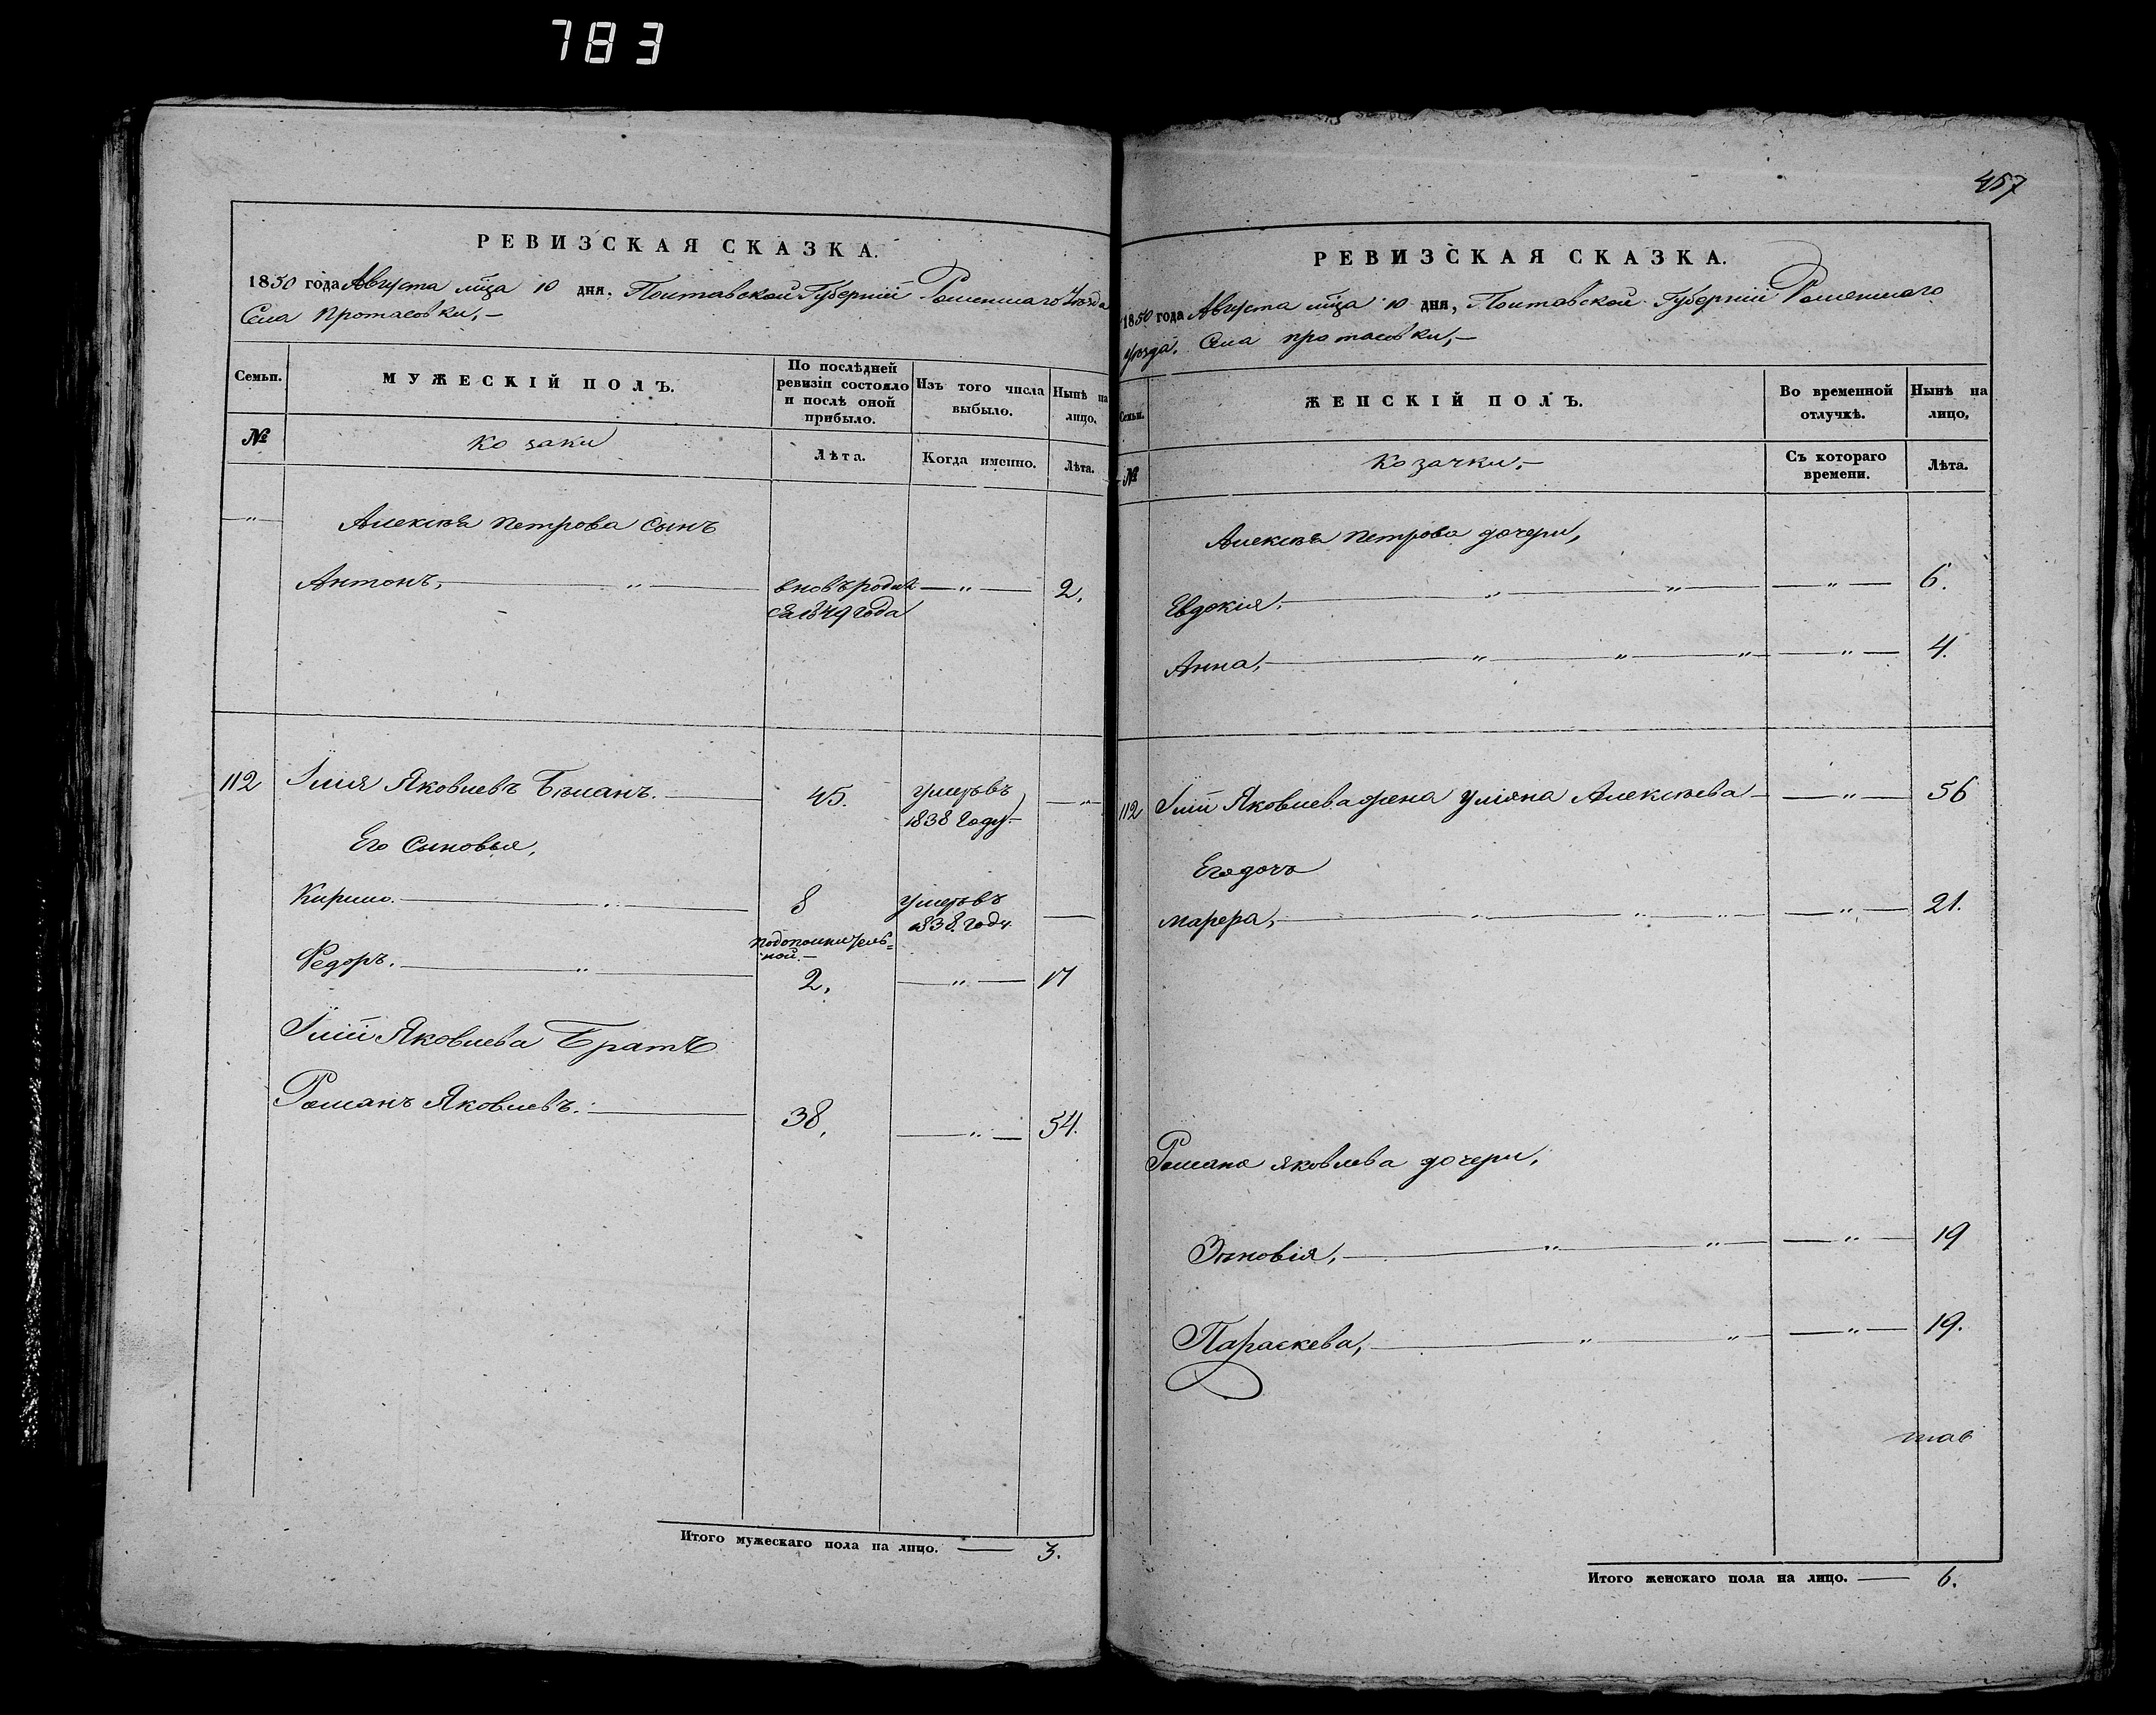 783
РЕВИЗСКАЯ СКАЗКА.
1850 года Августа мца 10 дня, Полтавской Губерніи Роменшаго Уѣзда
Села Протасовки,—
Семьи.
МУЖЕСКІЙ ПОЛЪ.
По послѣдней ревизіи состояло и послѣ оной прибыло.
Изъ того числа выбыло.
Нынѣ на лицо.
№
Козаки
Лѣта.
Когда именно.
Лѣта.
Алексѣя Петрова Сынъ
Антонъ, — " — вновь родил — " — 2.
ся 1849 года
112 Ілія Яковлевъ Бѣланъ. — 45. умеръ въ — " —
1838 Году.—
Его Сыновья,
Кирило. — 8 умеръ въ —
1838. году
подополнитель=
ной.—
Федоръ. — " — 2, — " — 17
Іліи Яковлева Братъ
Романъ Яковлевъ. — 38, — " — 54.
Итого мужескаго пола на лицо. — 3.
457
РЕВИЗСКАЯ СКАЗКА.
1850 года Августа мца 10 дня, Полтавской Губерніи Роменшаго
Уѣзда. Села протасовки,—
Семьи.
ЖЕНСКІЙ ПОЛЪ.
Во временной отлучкѣ.
Нынѣ на лицо,
№
Козачки,—
Съ котораго времени.
Лѣта.
Алексѣя Петрова дочери,
Евдокія, — " — " — " — 6.
Анна, — " — " — " — " — 4.
112 Іліи Яковлева жена Уліяна Алексѣева — " — 56
Его дочь
марѳра, — " — " — " — " — 21.
Романа яковлева дочери,
Зѣновія, — " — " — " — 19
Параскева, — " — " — " — 19.
Итого женскаго пола на лицо. — 6.